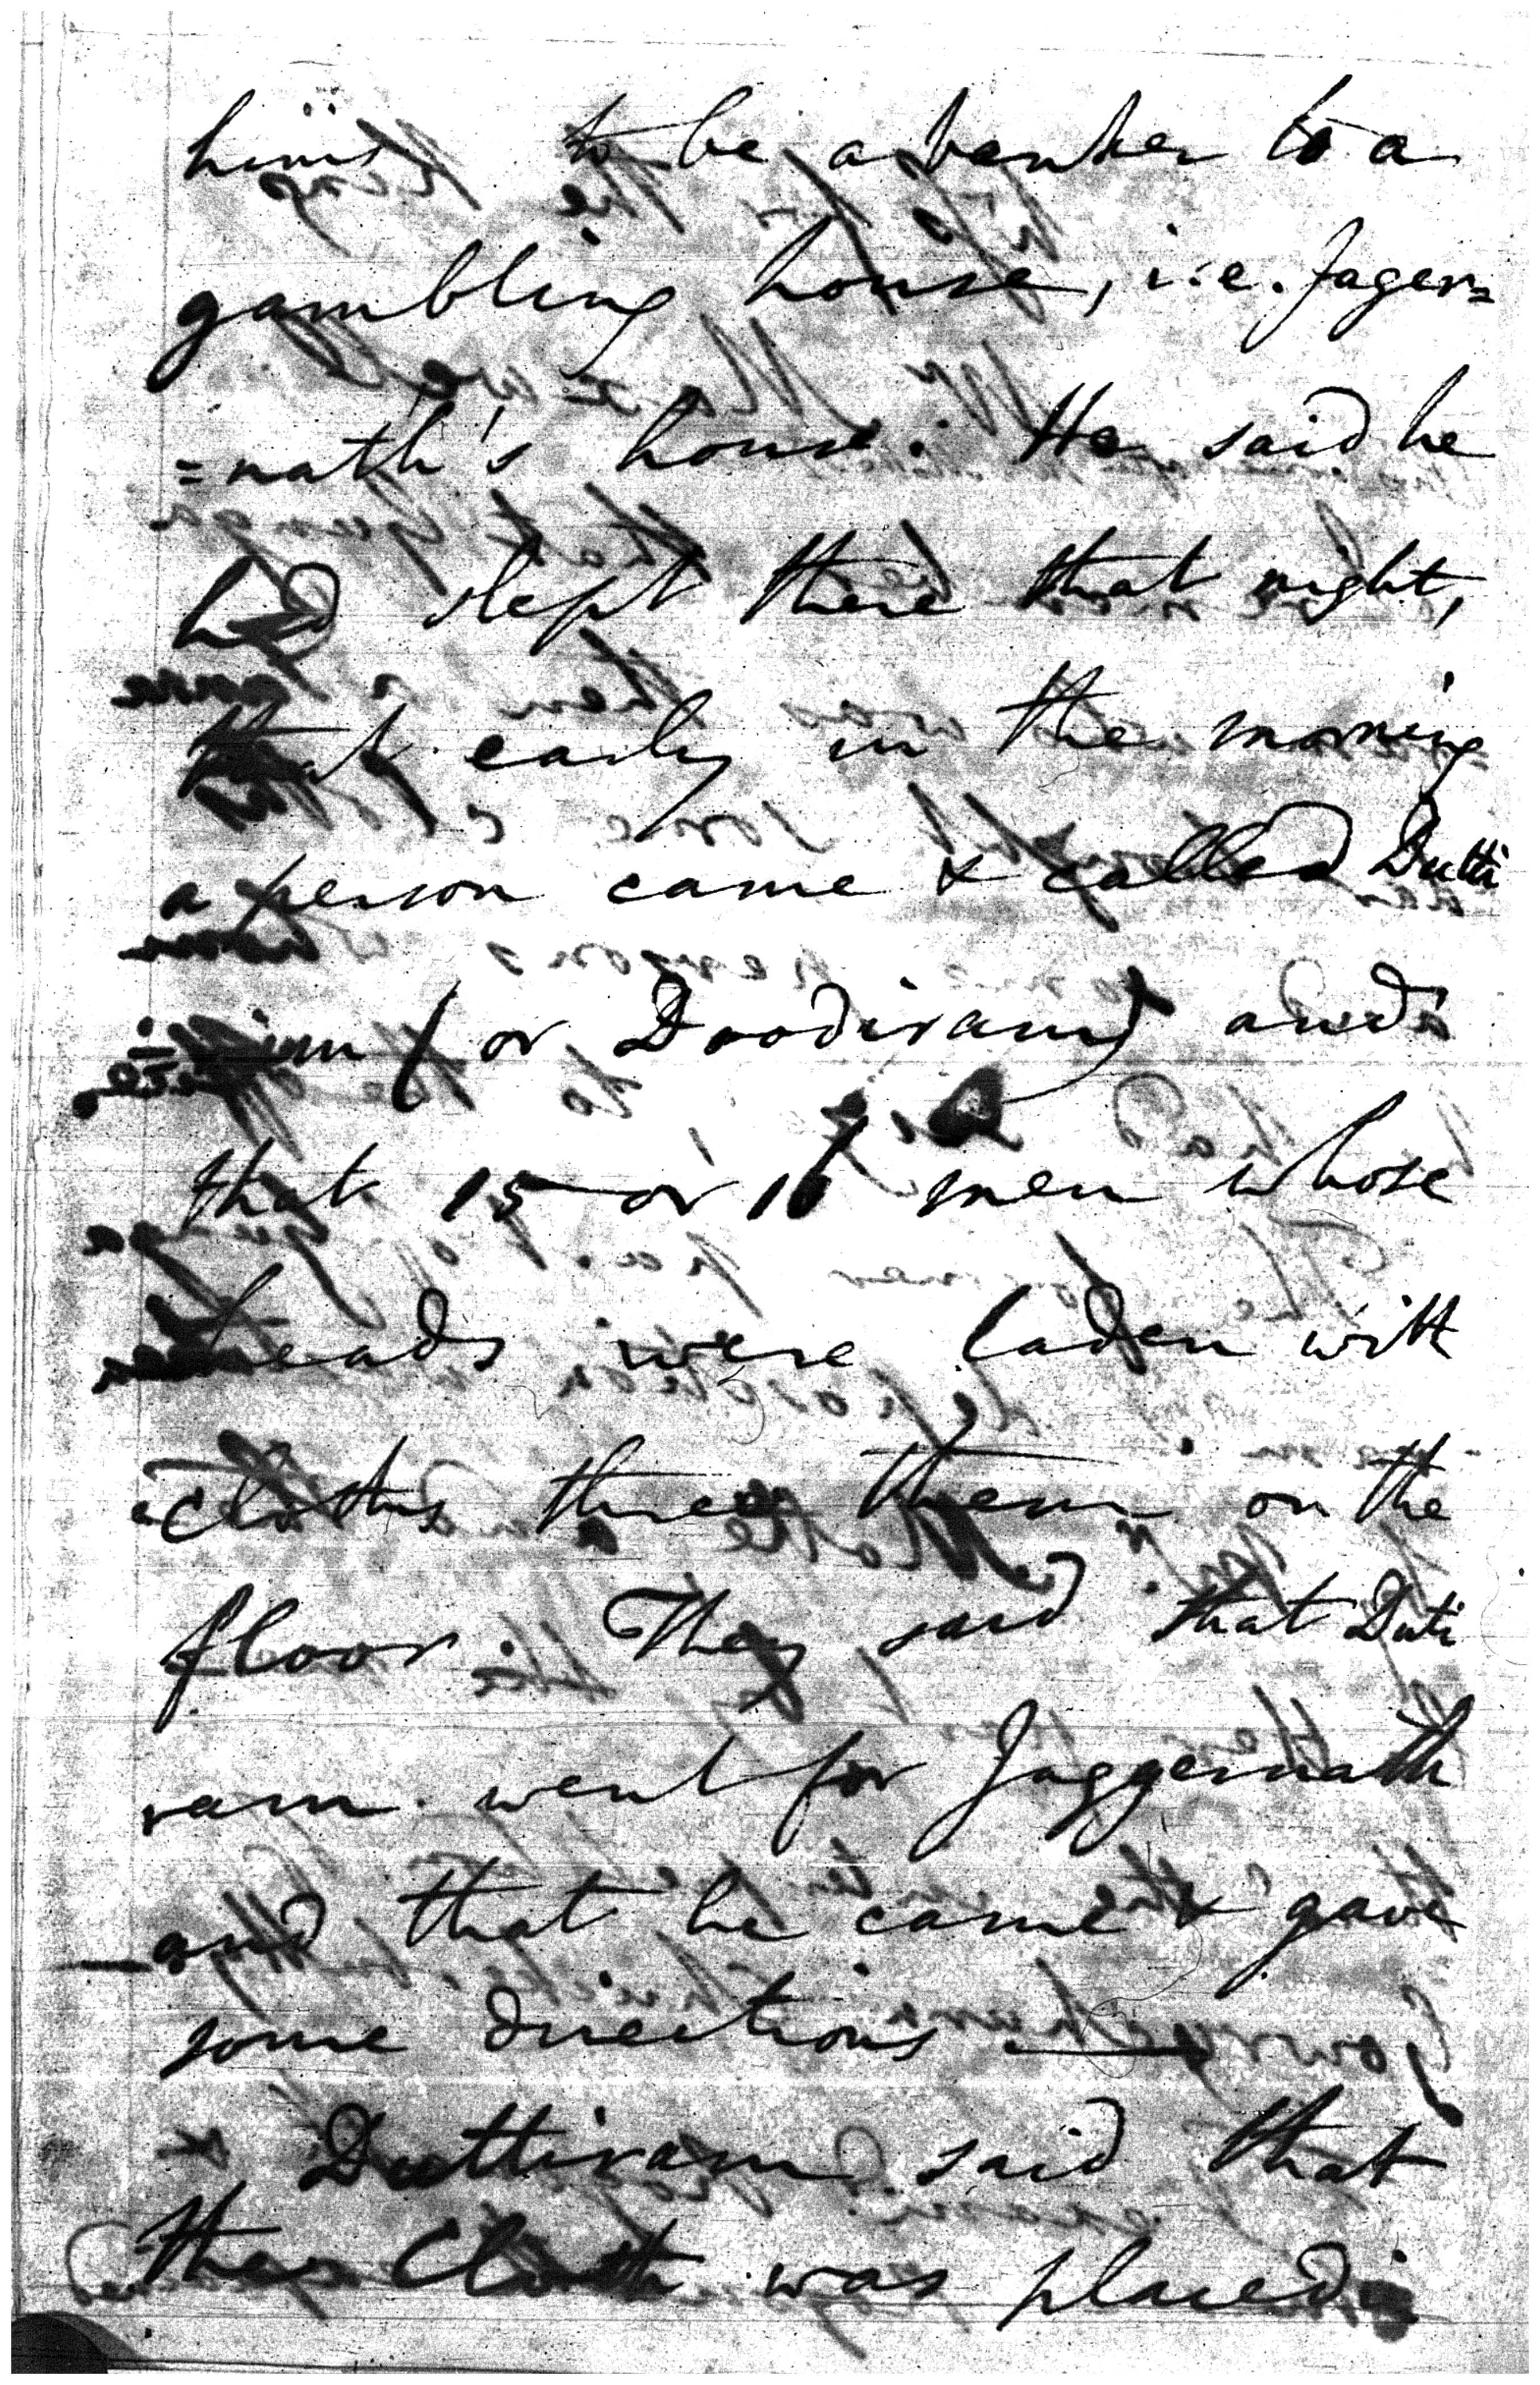 him to be a banker to a
gambling house, i.e. Jager=
=nath's house. He said he
had slept there that night,
that early in the morning
a person came & called Dutti
=ram (or Doodiram) and
that 15 or 16 men whose
heads were laden with
cloths threw them on the
floor. They said that Duti
ram went for Juggernath
and that he came & gave
some directions —
Duttiram said that
the Cloth was placed